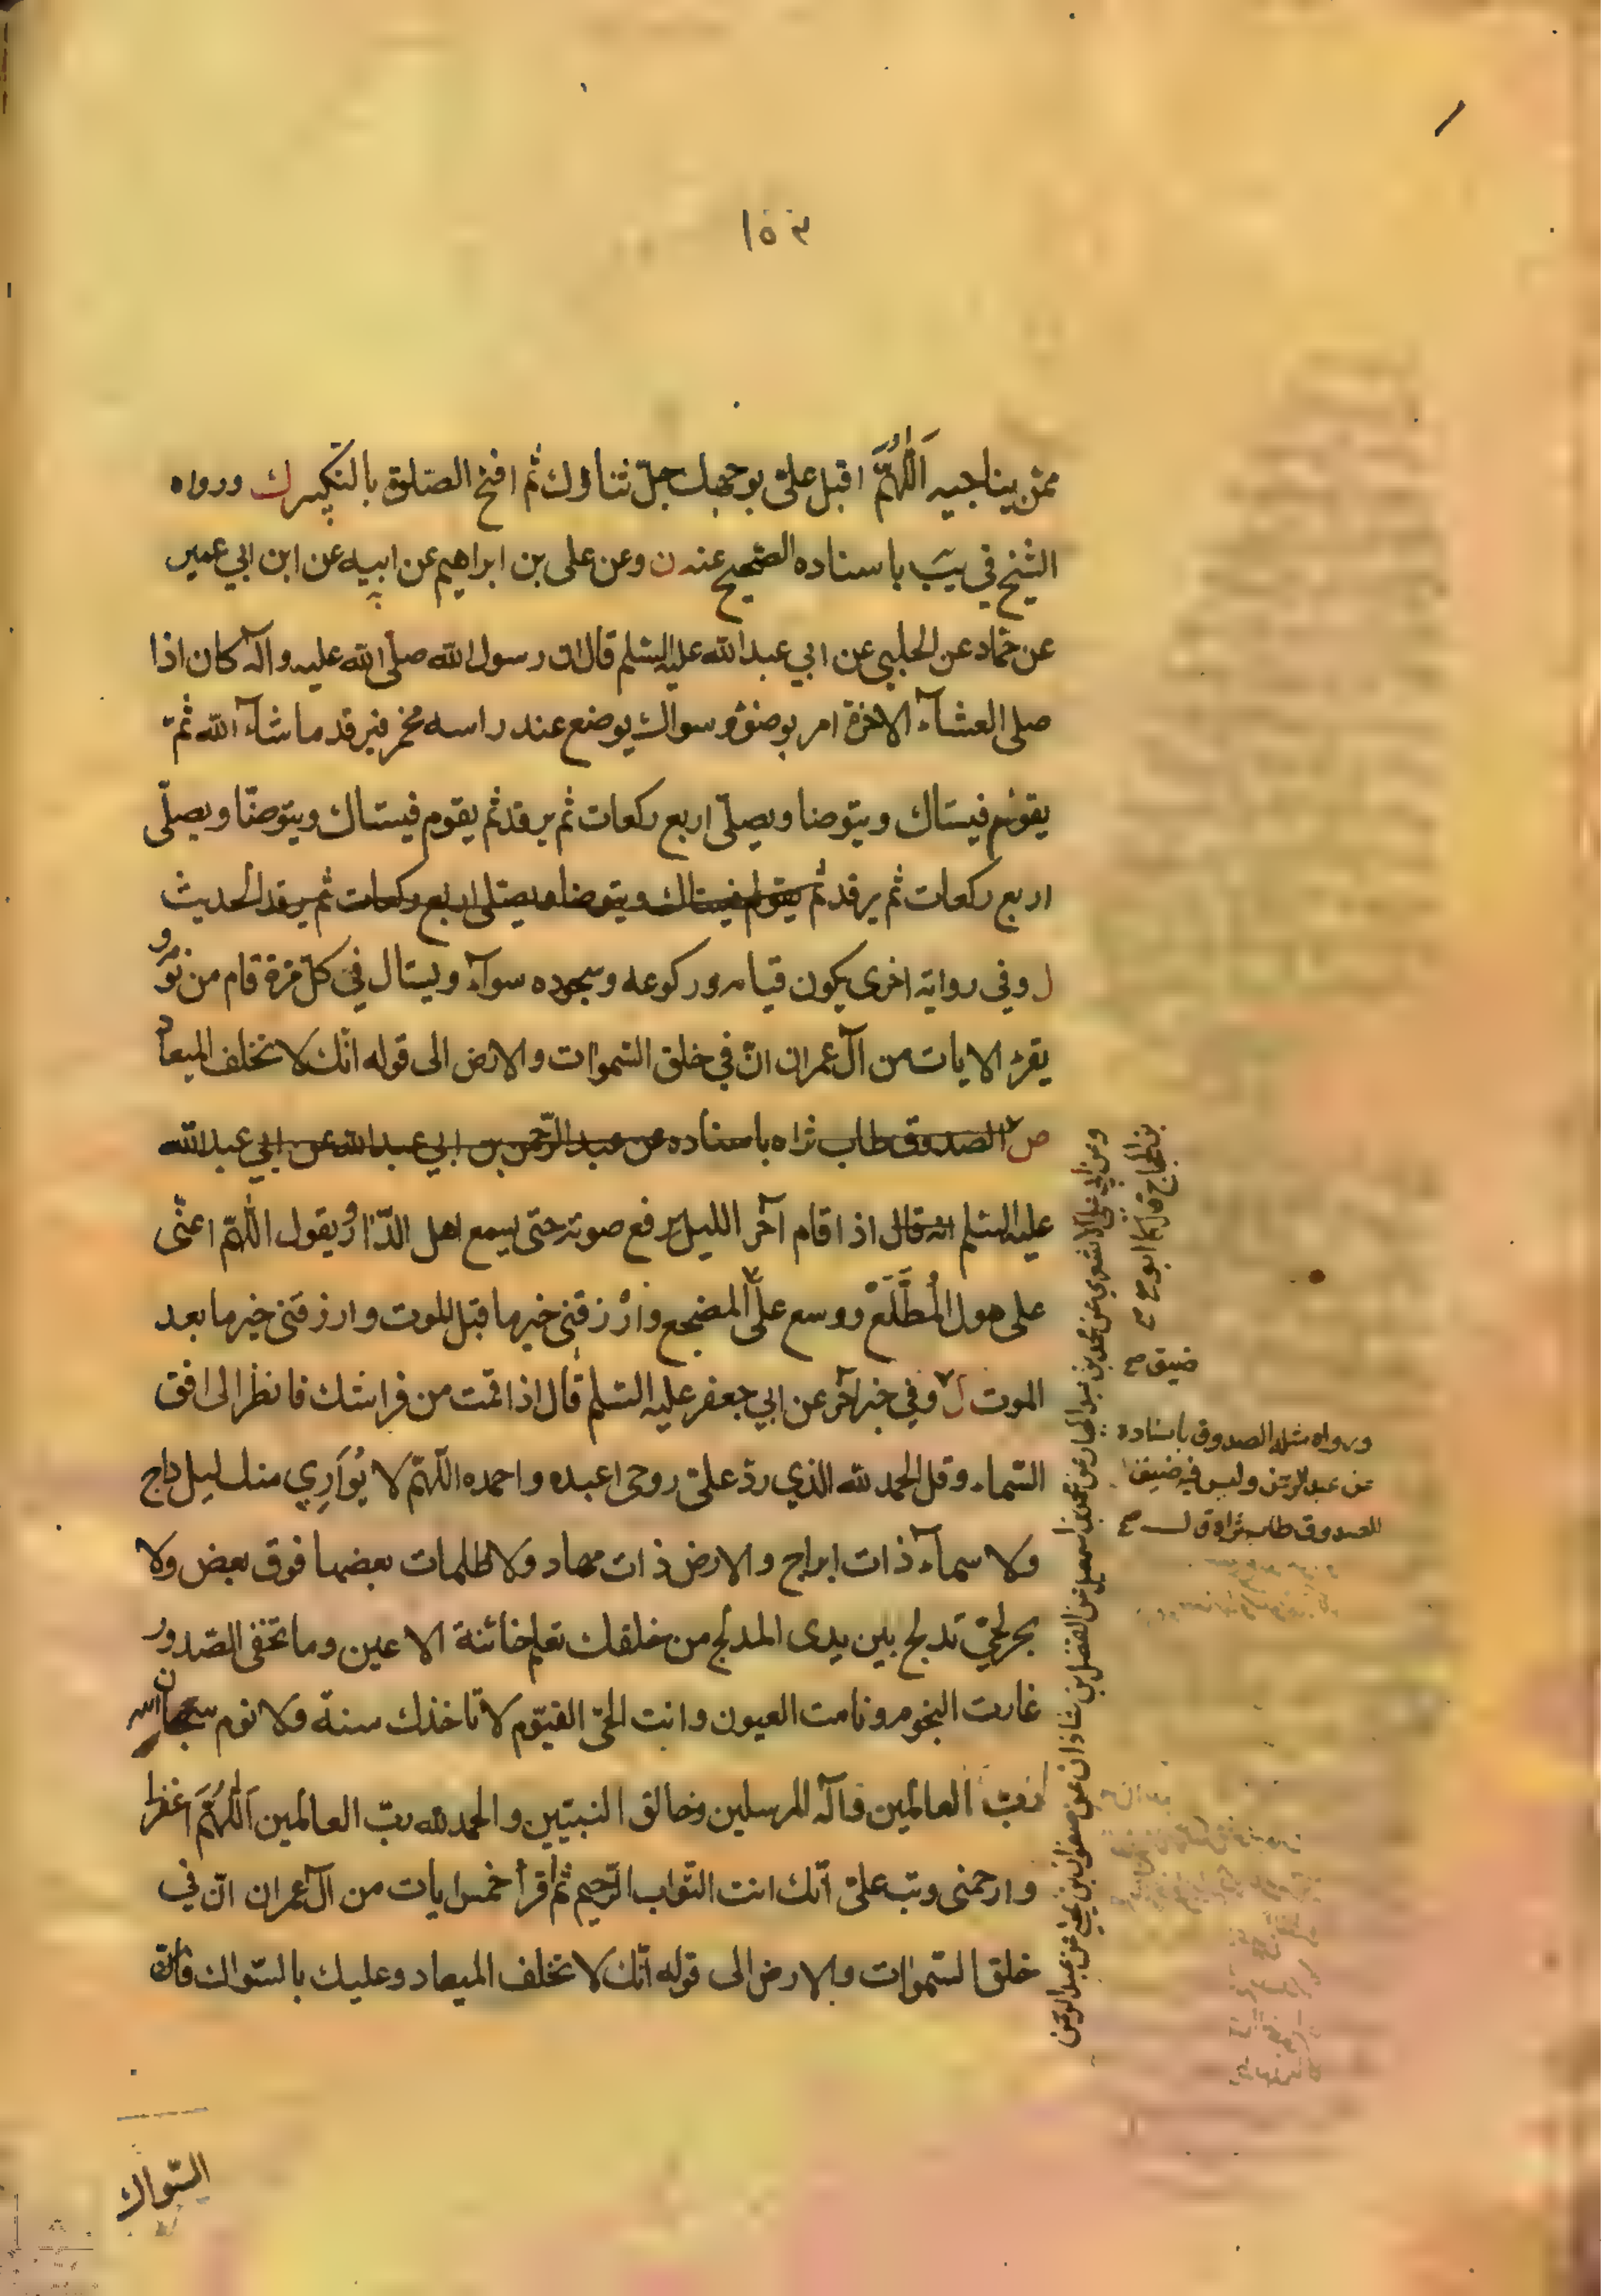 ١٥٣
ممّن يناجيه اَللّٰهُمَّ اقبل علىّ بوجهك جلّ ثناؤك ثم افتح الصّلوة بالتكبير ك ورواه
الشيخ في يَبَ باسناده الصّحيح عنه ن وعن على بن ابراهيم عن ابيه عن ابن ابي عمير
عن حمّاد عن الحلبي عن ابي عبد الله عليه السّلم قال ان رسول الله صلّى الله عليه وآله كان اذا
صلى العشآء الاخرة امر بوضوء وسواك يوضع عند راسه مخمر فيرقد ما شآء الله ثمّ
يقوم فيستاك ويتوضا ويصلّى اربع ركعات ثم يرقد ثم يقوم فيستاك ويتوضّا ويصلّى
اربع ركعات ثم يرقد ثم يقوم فيستاك ويتوضا ويصلى اربع ركعات ثم يرقد الحديث
ل وفي رواية اخرى يكون قيامه وركوعه وسجوده سوآء ويستاك في كلّ مرّة قام من نومه و
يقرء الايات من آل عمران انّ في خلق السّموات والارض الى قوله انّك لا تخلف الميعاد
ص الصدوق طاب ثراه باسناده عن عبد الرّحمن بن ابي عبد الله عن ابي عبد الله
عليه السّلم انه قال اذا قام آخر الليل يرفع صوته حتى يسمع اهل الدّار ويقول اللّٰهمّ اعنّى
على هول اَلْمُطَّلَعْ ووسع علىّ المضجع وَارْزقنى خير ما قبل الموت وارزقنى خير ما بعد
الموت ل وفي خبر آخر عن ابي جعفر عليه السّلم قال اذا قمت من فراشك فانظر الى افق
السّماء وقل الحمد لله الذي ردّ علىّ روحى اعبده واحمده اللّٰهمّ لا يُوَارِي منك ليل داج
ولا سمآء ذات ابراج والارض ذات مهاد ولا ظلمات بعضها فوق بعض ولا
بحر لجيّ تدلج بين يدى المدلج من خلقك تعلم خائنة الاعين وما تخفى الصّدور
غارت النجوم ونامت العيون وانت الحىّ القيّوم لا تاخذك سنة ولا نوم سبحان الله
ربّ العالمين وآله المرسلين وخالق النبيّين والحمد لله ربّ العالمين اَللّٰهُمَّ اغفرلى
وارحمنى وتب علىّ انّك انت التّواب الرّحيم ثم اقرأ خمس ايات من آل عمران انّ في
خلق السّموات والارض الى قوله انّك لا تخلف الميعاد وعليك بالسّواك فانّ
السّواك
وعن ابي علىّ الاشعري عن محمّد بن عبد الجبّار عن محمّد بن اسمعيل عن الفضل بن شاذان عن صفوان بن يحيى عن عبد الرّحمن
بن الحجّاج قال كان ابو
ضيق صح
ورواه مثله الصدوق باسناده
عن عبد الرّحمن وليس فيه ضيق
الصدوق طاب ثراه